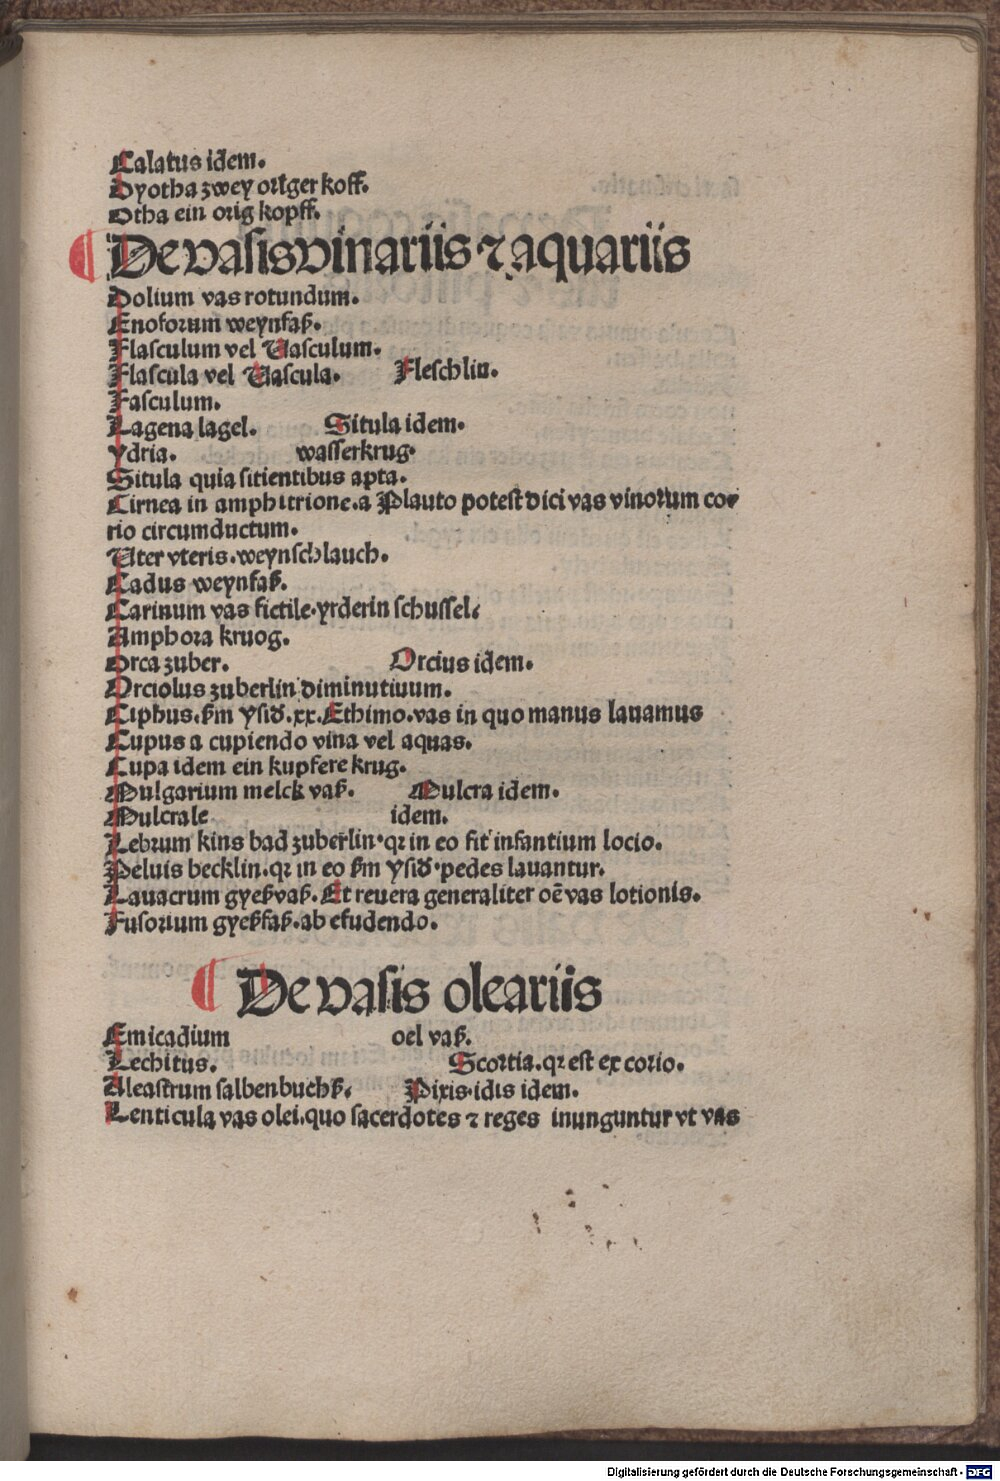 Calatus idem.
Dyotha zwey origer koff.
Otha ein orig kopff.
De vasis vinariis ⁊ aquariis
Dolium vas rotundum.
Enoforum weynfaß.
Flasculum vel Vasculum.
Flascula vel Vascula. Fleschlin.
Fasculum.
Lagena lagel. Situla idem.
Ydria. wasserkrug.
Situla quia sitientibus apta.
Cirnea in amphitrione. a Plauto potest dici vas vinorum cor
rio circumductum.
Uter vteris. weynschlauch.
Cadus weynfaß.
Carinum vas fictile. yrderin schussel.
Amphora kruog.
Orca zuber. Orcius idem.
Orciolus zuberlin diminutiuum.
Ciphus. ßm Ysid. xx. Ethimo. vas in quo manus lauamus
Cupus a cupiendo vina vel aquas.
Cupa idem ein kupfere krug.
Mulgarium melck vaß. Mulcra idem.
Mulcrale idem.
Lebrum kins bad zuberlin. qꝛ in eo fit infantium locio.
Peluis becklin. qꝛ in eo ßm Ysid. pedes lauantur.
Lauacrum gyeßvaß. Et reuera generaliter oē vas lotionis.
Fusorium gyeßfaß. ab efudendo.
De vasis oleariis
Emicadium oel vaß.
Lechitus. Scortia. qꝛ est ex corio.
Aleastrum salbenbuchß. Pixis. idis idem.
Lenticula vas olei. quo sacerdotes ⁊ reges inunguntur vt vas
Digitalisierung gefördert durch die Deutsche Forschungsgemeinschaft - DFG